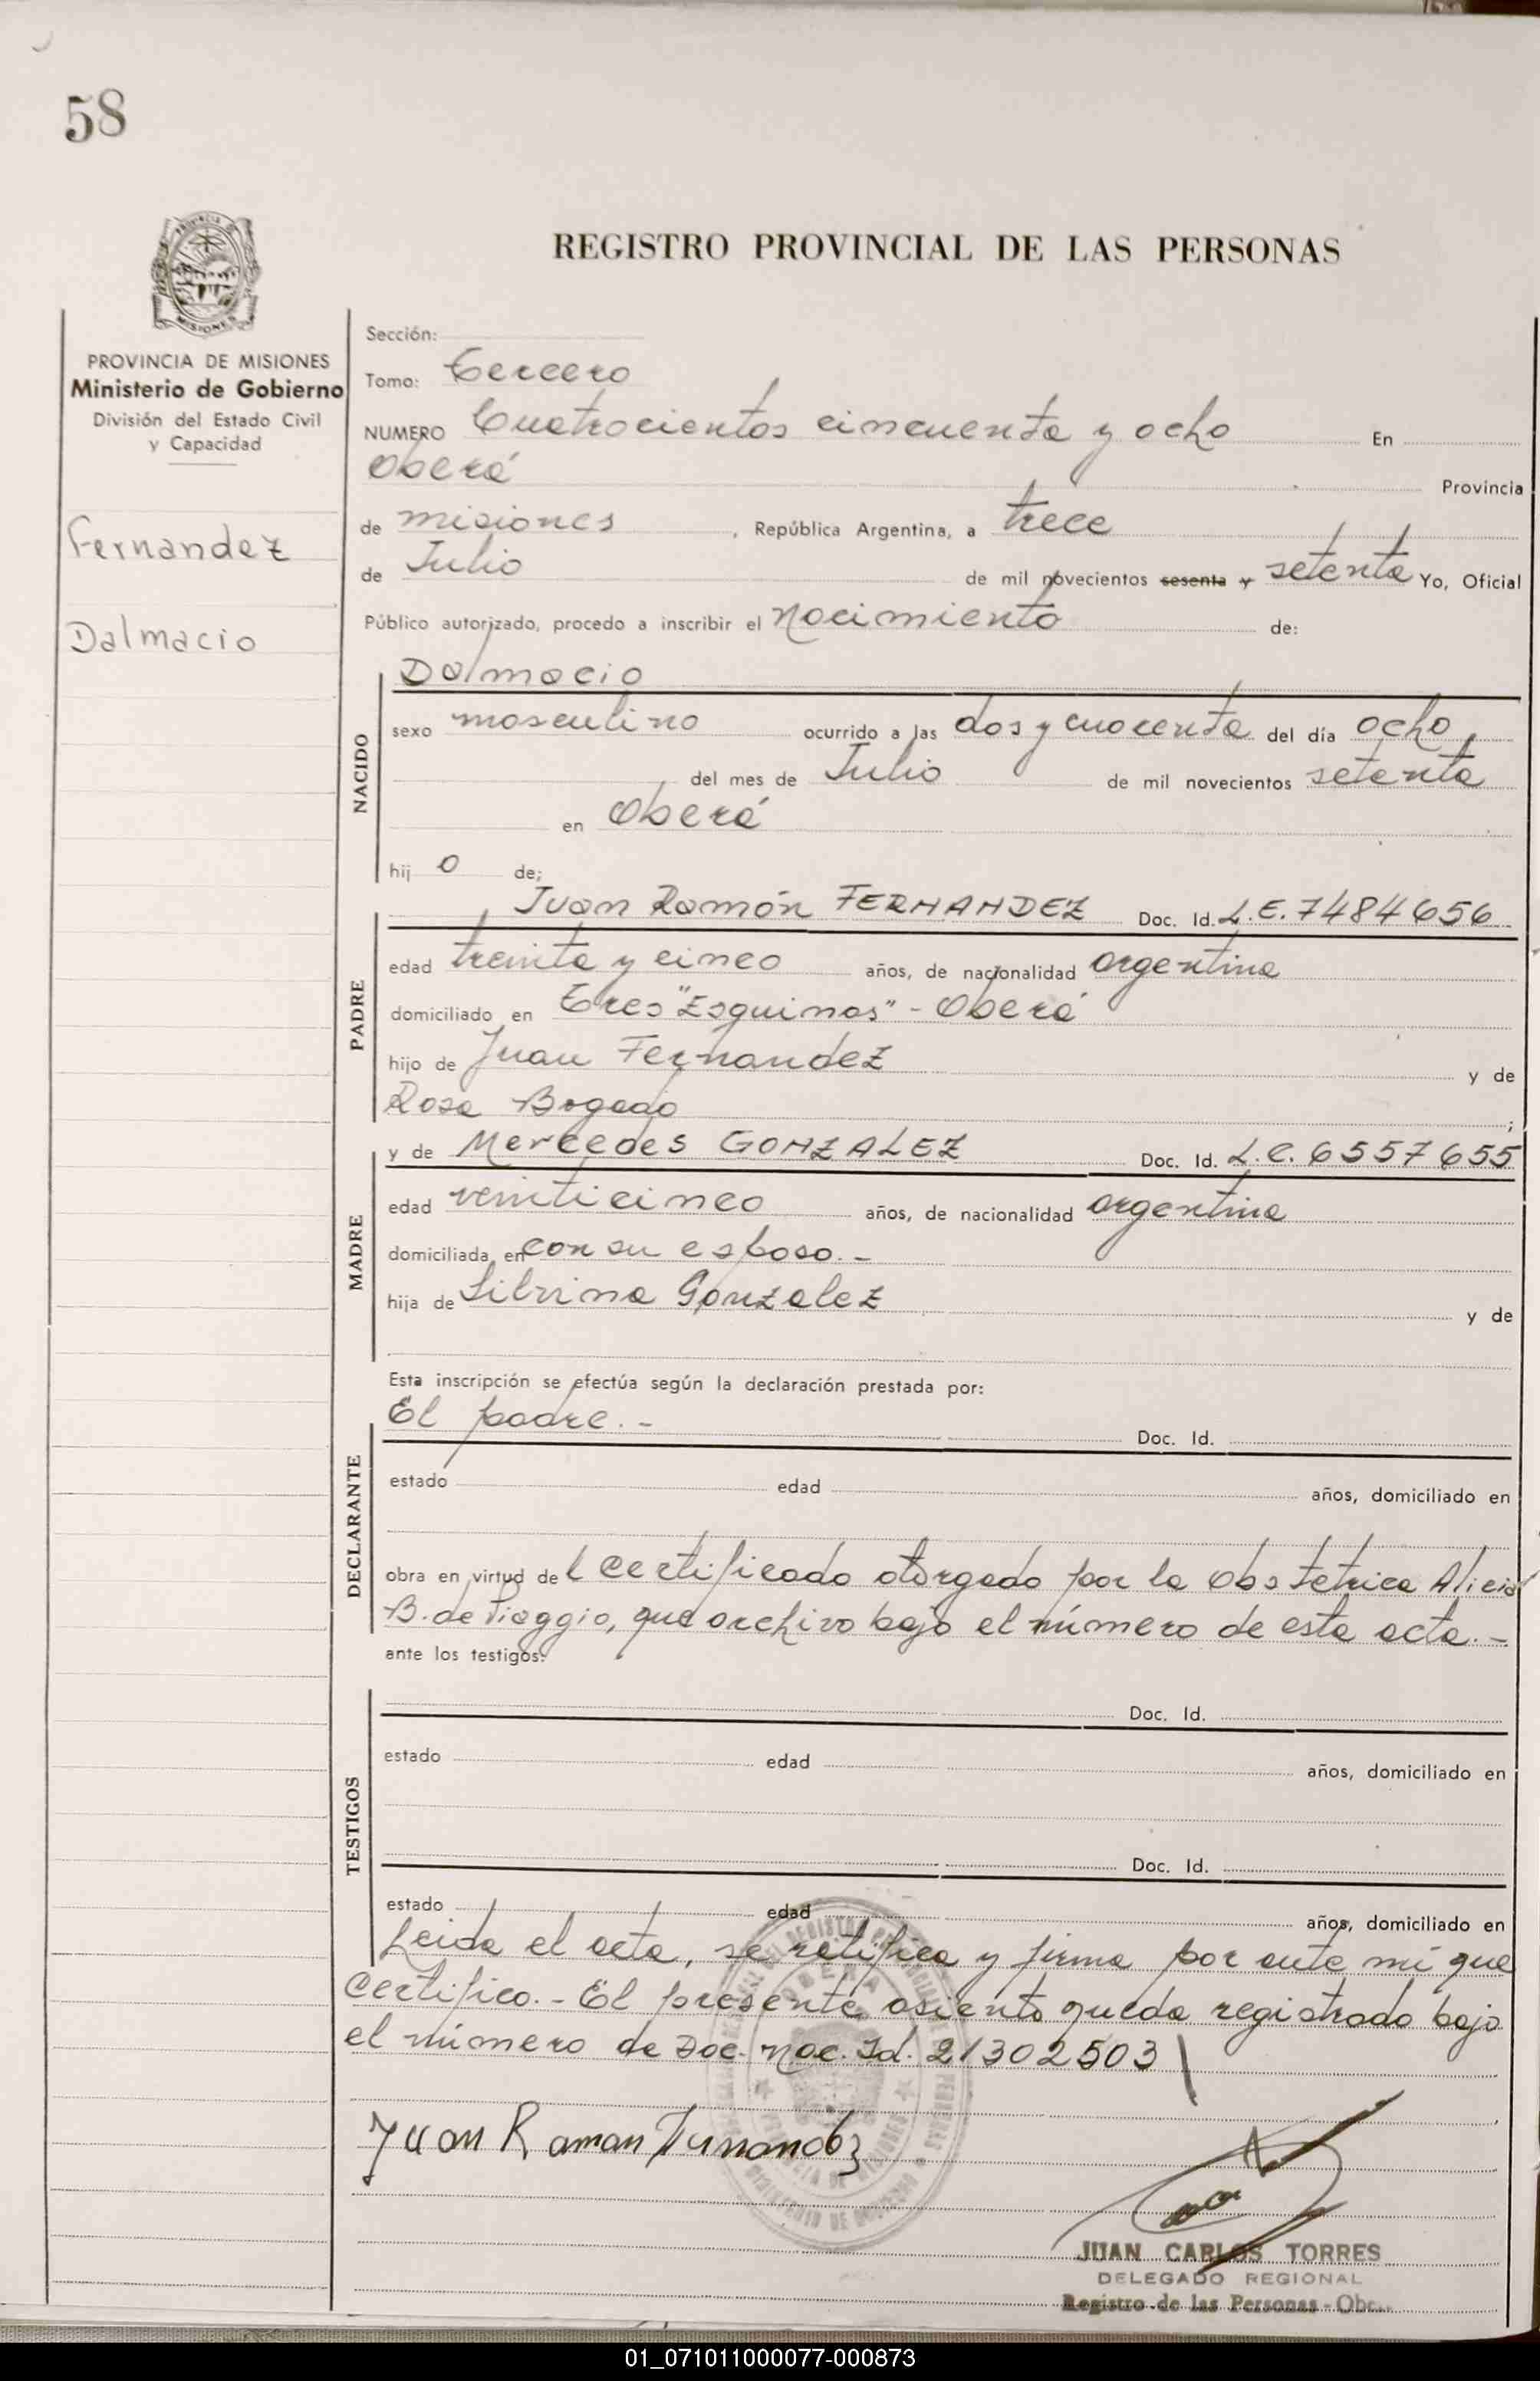 58
REGISTRO PROVINCIAL DE LAS PERSONAS
MISIONES
PROVINCIA DE MISIONES
Ministerio de Gobierno
División del Estado Civil
y Capacidad
Fernandez
Dalmacio
Sección:
Tomo: Tercero
NUMERO Cuatrocientos cincuenta y ocho En
Oberá Provincia
de misiones, República Argentina, a trece
de Julio de mil novecientos sesenta y setenta Yo, Oficial
Público autorizado, procedo a inscribir el Nacimiento de:
NACIDO
Dalmacio
sexo masculino ocurrido a las dos y cuarenta del día ocho
del mes de Julio de mil novecientos setenta
en Oberá
hij o de;
PADRE
Juan Ramón FERNANDEZ Doc. Id. L.E. 7484656
edad treinta y cinco años, de nacionalidad argentina
domiciliado en Tres "Esquinas" - Oberá
hijo de Juan Fernandez y de
Rosa Bogado ;
MADRE
y de Mercedes GONZALEZ Doc. Id. L.C. 6557655
edad veinticinco años, de nacionalidad argentina
domiciliada en con su esposo. -
hija de Silvina Gonzalez y de
Esta inscripción se efectúa según la declaración prestada por:
DECLARANTE
El padre. -
Doc. Id.
estado edad años, domiciliado en
obra en virtud de l certificado otorgado por la obstetrica Alicia
B. de Piaggio, que archivo bajo el número de esta acta. -
ante los testigos:
TESTIGOS
Doc. Id.
estado edad años, domiciliado en
Doc. Id.
estado edad años, domiciliado en
Leida el acta, se ratifica y firma por ante mí que
Certifico. - El presente asiento queda registrado bajo
el número de Doc. Nac. Id. 21302503
Juan Ramon Fernandez
JUAN CARLOS TORRES
DELEGADO REGIONAL
Registro de las Personas - Obe
01_071011000077-000873